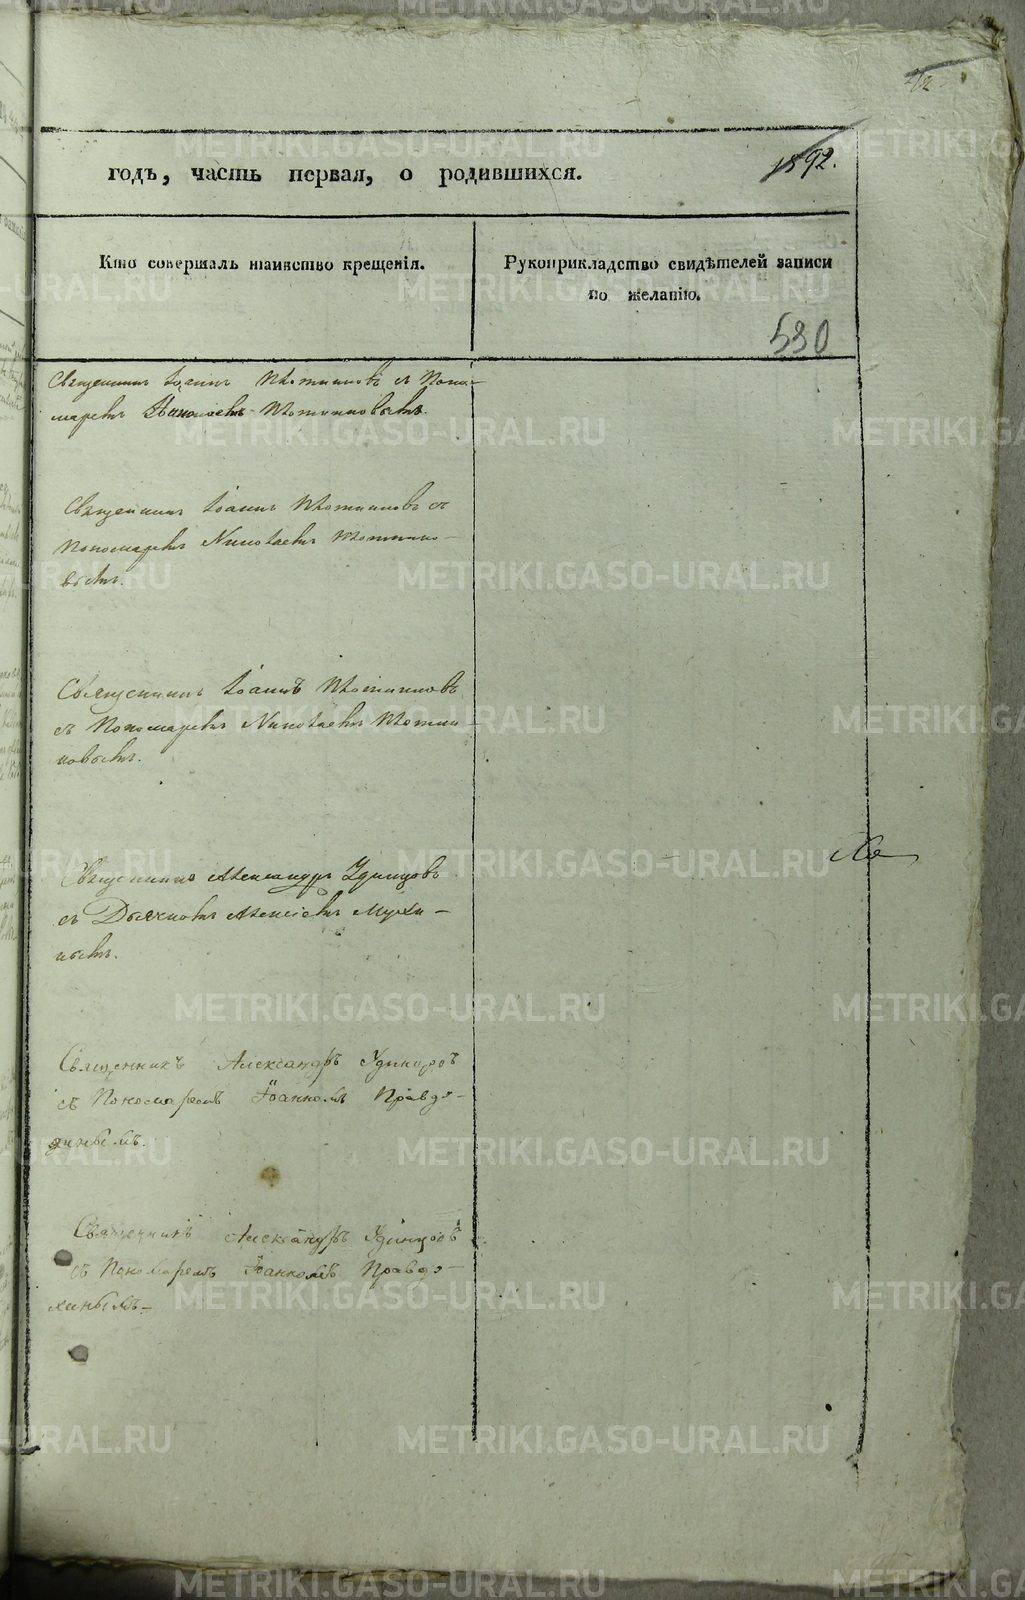 1892.
годъ, часть первая, о родившихся.
Кто совершалъ таинство крещенія.
Рукоприкладство свидѣтелей записи
по желанію.
530
Священникъ Іоаннъ съ Поно-
маремъ
Священникъ Іоаннъ съ
Пономаремъ Николаемъ
Священникъ Іоаннъ
съ Пономаремъ Николаемъ
новымъ.
Священникъ Александръ Удинцовъ
съ Дьячкомъ Алексіемъ Мухи-
нымъ.
Священникъ Александръ Удинцовъ
съ Пономаремъ Іоанномъ Правдо-
хинымъ.
Священникъ Александръ Удинцовъ
съ Пономаремъ Іоанномъ Правдо-
хинымъ.
METRIKI.GASO-URAL.RU